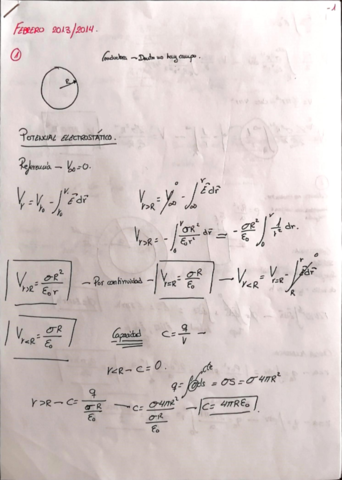 -1
FEBRERO 2013/2014.
① Conductor - Dentro no hay campo.
R
POTENCIAL ELECTROSTÁTICO.
Referencia - V∞=0.
V_r = V_{r_0} - ∫_{r_0}^{r} E⃗ dr⃗    V_{r>R} = V_∞^0 - ∫_∞^r E⃗ dr⃗
V_{r>R} = - ∫_∞^r σR²/ε₀r² dr⃗ = - σR²/ε₀ ∫_∞^r 1/r² dr.
V_{r>R} = σR²/ε₀r - Por continuidad - V_{r=R} = σR/ε₀ - V_{r<R} = V_{r=R} - ∫_R^r E⃗ dr⃗ ^0
V_{r<R} = σR/ε₀    Capacidad    C = q/V -
r<R - C = 0.
q = ∫σds = σS = σ4πR²
r>R - C = q/(σR/ε₀) - C = σ4πR²/(σR/ε₀) - C = 4πRε₀.